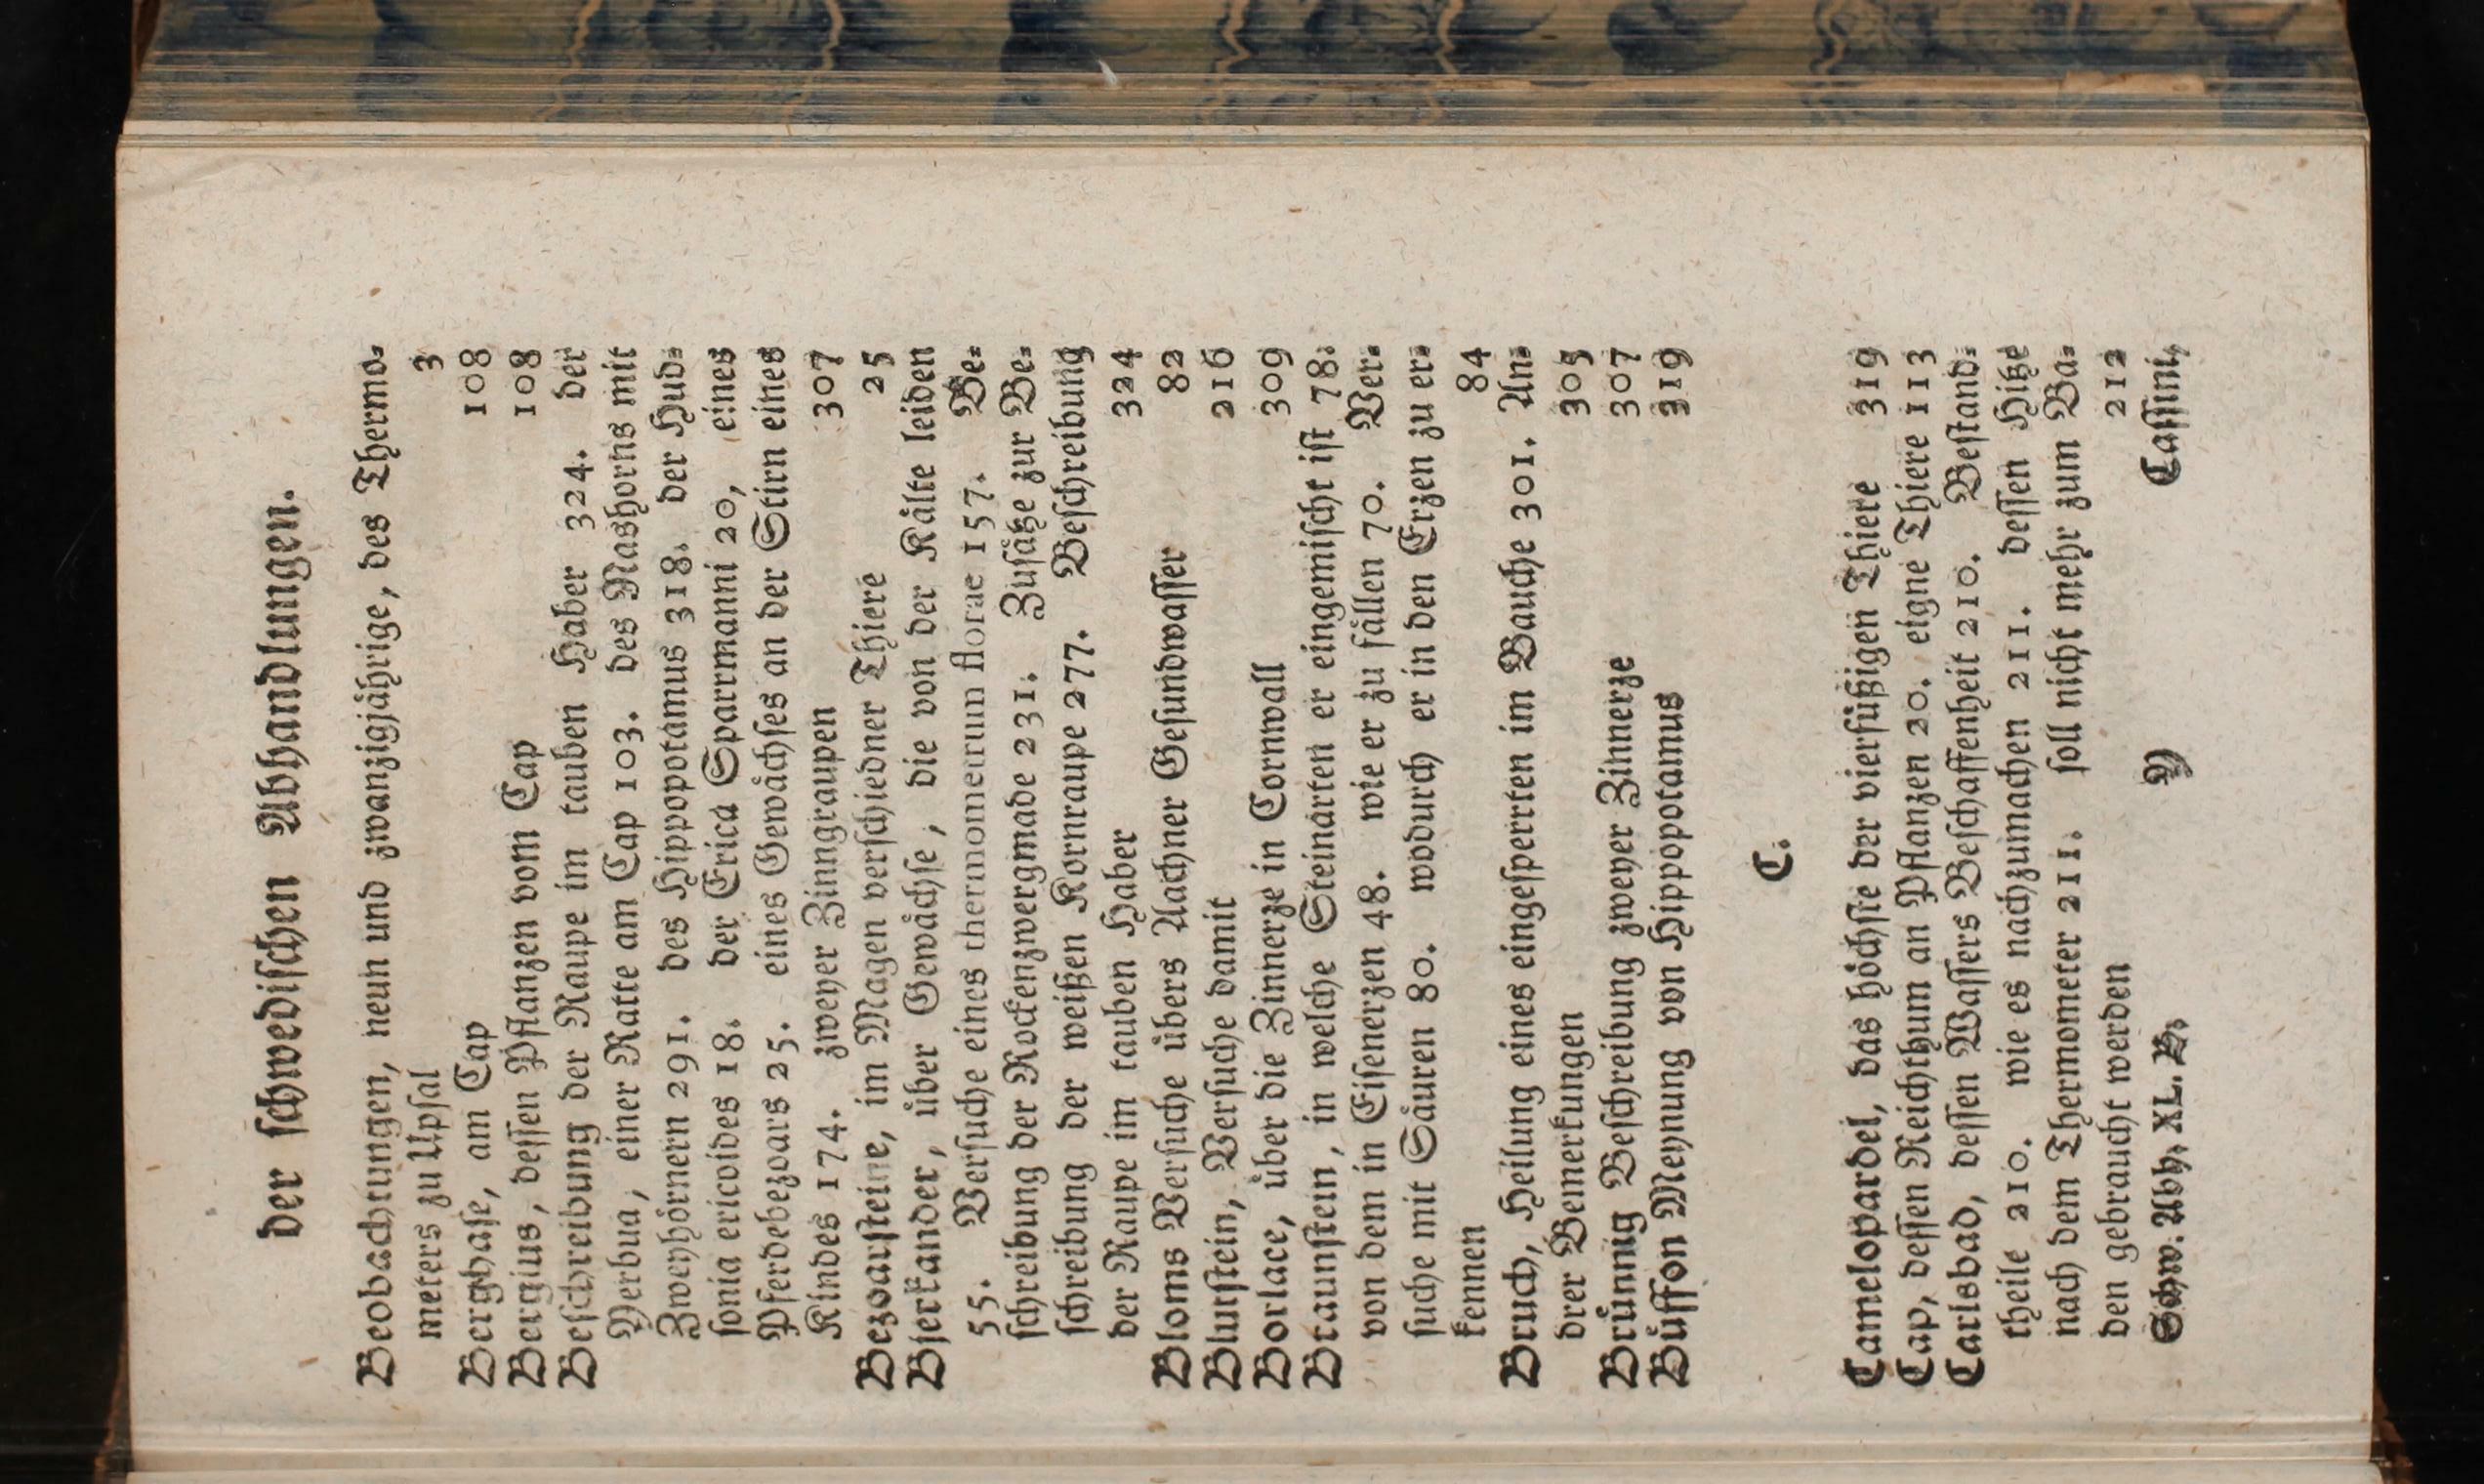 der schwedischen Abhandlungen.
Beobachtungen, neun und zwanzigjährige, des Thermo-
meters zu Upsal 3
Berghase, am Cap 108
Bergius, dessen Pflanzen vom Cap 108
Beschreibung der Raupe im tauben Haber 324. der
Yerbua, einer Ratte am Cap 103. des Nashorns mit
Zweyhörnern 291. des Hippopotamus 318. der Hud-
sonia ericoides 18. der Erica Sparrmanni 20, eines
Pferdebezoars 25. eines Gewächses an der Stirn eines
Kindes 174. zweyer Zinngraupen 307
Bezoarsteine, im Magen verschiedner Thiere 25
Bjerkander, über Gewächse, die von der Kälte leiden
55. Versuche eines thermometrum florae 157. Be-
schreibung der Rockenzwergmade 231. Zusätze zur Be-
schreibung der weißen Kornraupe 277. Beschreibung
der Raupe im tauben Haber 324
Bloms Versuche übers Aachner Gesundwasser 82
Blutstein, Versuche damit 216
Borlace, über die Zinnerze in Cornwall 309
Braunstein, in welche Steinarten er eingemischt ist 78.
von dem in Eisenerzen 48. wie er zu fällen 70. Ver-
suche mit Säuren 80. wodurch er in den Erzen zu er-
kennen 84
Bruch, Heilung eines eingesperrten im Bauche 301. An-
drer Bemerkungen 305
Brünnig Beschreibung zweyer Zinnerze 307
Büffon Meynung von Hippopotamus 319
C.
Camelopardel, das höchste der vierfüßigen Thiere 319
Cap, dessen Reichthum an Pflanzen 20. eigne Thiere 113
Carlsbad, dessen Wassers Beschaffenheit 210. Bestand-
theile 210. wie es nachzumachen 211. dessen Hitze
nach dem Thermometer 211. soll nicht mehr zum Ba-
den gebraucht werden 212
Schw. Abh. XL. B. Y Cassini,